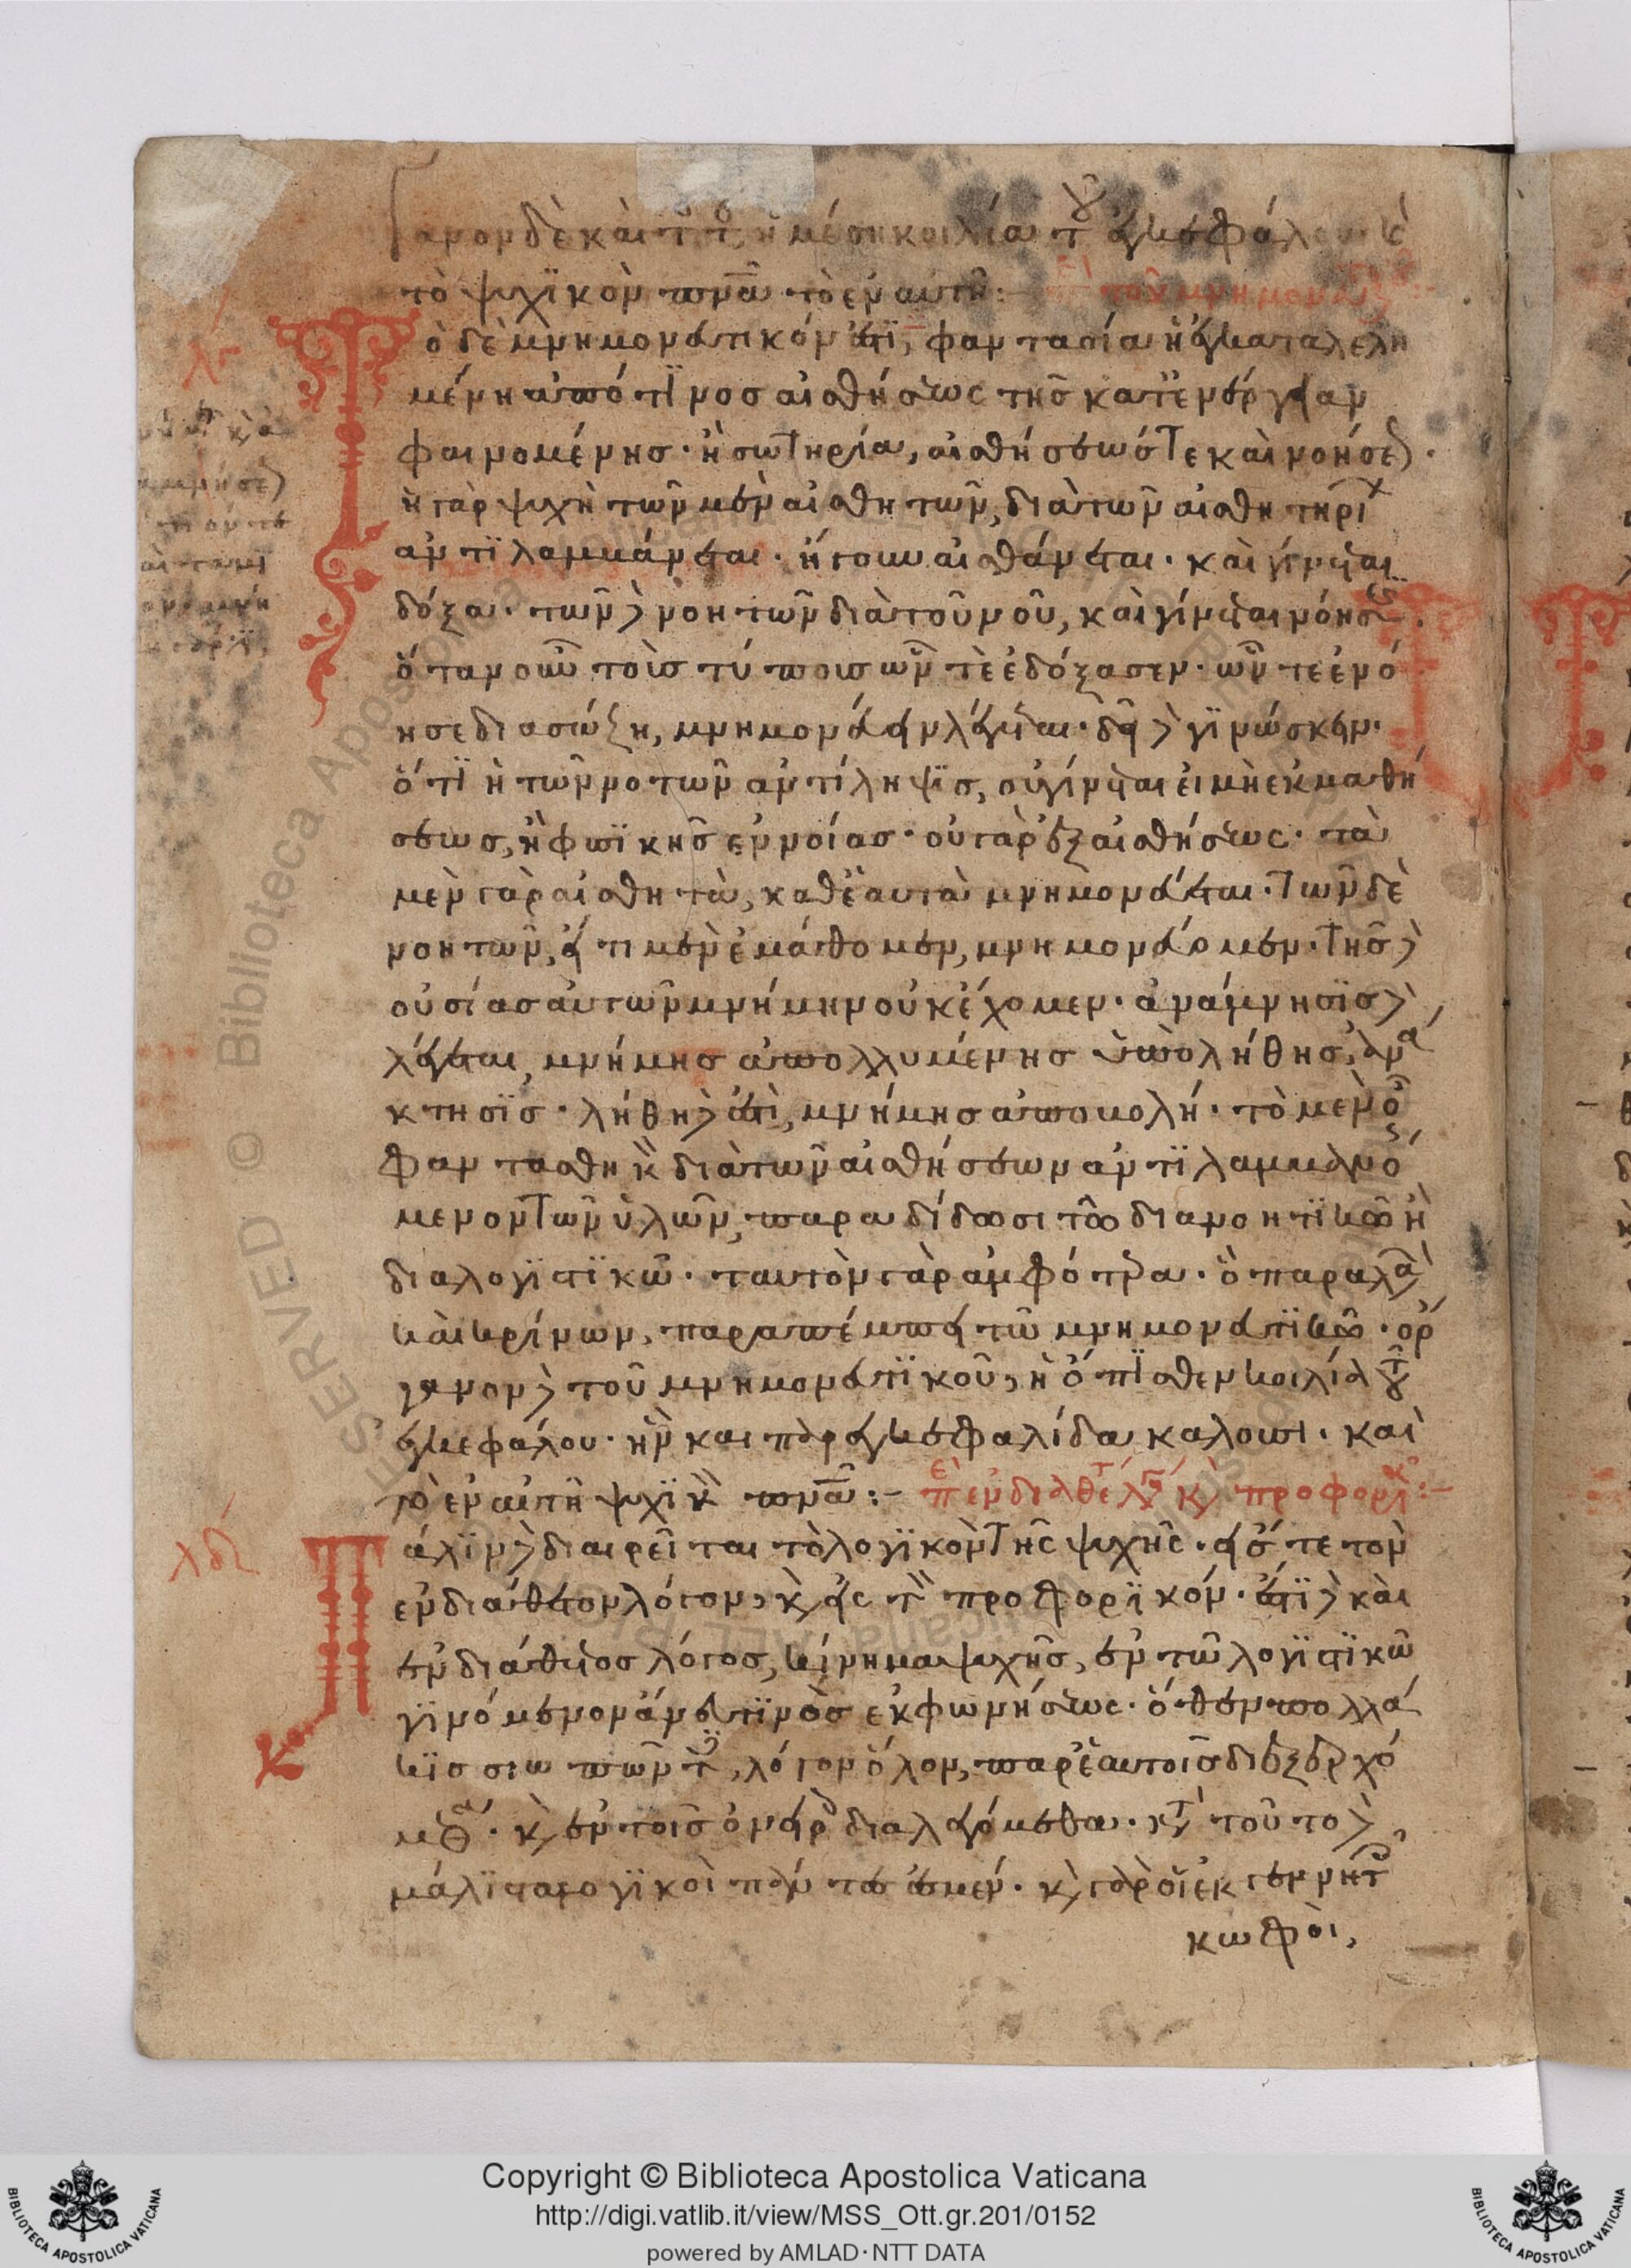 γανον δὲ καὶ τούτου, ἡ μέση κοιλία τοῦ ἐγκεφάλου κ
τὸ ψυχϊκὸν πνα τὸ ἐν αυτῆ:
ὸ δὲ μνημονευτικόν ἐστϊ, φαντασία ἡ ἐγκαταλελη
μένη ἀπό τϊνοσ αἰσθήσεως τῆσ κατἐνέργειαν
φαινομένησ· ἢ σωτηρία, αἰσθήσεώσ τε καὶ νοήσεως·
ἡ γὰρ ψυχὴ τῶν μὲν αἰσθητῶν, διὰ τῶν αἰσθητηρί
ἀντϊλαμβάνεται· ἤγουν αἰσθάνεται· καὶ γίνεται
δόξα· τῶν δὲ νοητῶν διὰ τοῦ νοῦ, καὶ γίνεται νόησις·
ὅταν οὖν τοὺσ τύπουσ ὧν τὲ ἐδόξασεν· ὧν τε ἐνό
ησε διασώζη, μνημονεύειν λέγεται· δεῖ δὲ γϊνώσκειν·
ὅτϊ ἡ τῶν νοτῶν ἀντίληψϊσ, οὐ γίνεται εἰ μὴ ἐκ μαθή
σεωσ, ἢ φυσϊκῆσ ἐννοίασ· οὐ γὰρ ἐξ αἰσθήσεως· τὰ
μὲν γὰρ αἰσθητὰ, καθἑαυτὰ μνημονεύεται· τῶν δὲ
νοητῶν, εἴ τι μὲν ἐμάθομεν, μνημονεύομεν· τῆσ δὲ
οὐσίασ αὐτῶν μνήμην οὐκ ἔχομεν· ἀνάμνησϊσ δὲ
λέγεται, μνήμησ ἀπολλυμένησ ὑπὸ λήθησ, ἀνά
κτησϊσ· λήθη δὲ ἐστὶ, μνήμησ ἀποβολή· τὸ μὲν οὖν
φανταστικὸν διὰ τῶν αἰσθήσεων ἀντϊλαμβανό
μενον τῶν ὑλῶν, παραδίδωσι τῶ διανοητϊκῶ ἢ
διαλογϊστϊκῶ· ταυτὸν γὰρ ἀμφότερα· ὃ παραλαβὸν
καὶ κρίνων, παραπέμπει τῶ μνημονευτϊκῶ· ὄρ
γανον δὲ τοῦ μνημονευτϊκοῦ, ἡ ὄπϊσθεν κοιλία τοῦ
ἐγκεφάλου· ἣν και παρεγκεφαλίδα καλουσι· καὶ
τὸ ἐν αὐτῆ ψυχϊκὸν πνα:- περὶ ἐνδιαθέτου λόγου κ προφορικοῦ:-
λδ
Πάλϊν δὲ διαιρεῖται τὸ λογϊκὸν τῆς ψυχῆς· εἴσ τε τὸν
ἐνδιάθετον λόγον, κ εἰς τὸν προφορϊκόν· ἐστϊ δὲ καὶ
ἐνδιάθετοσ λόγοσ, κίνημα ψυχῆσ, ἐν τῶ λογϊστϊκῶ
γϊνόμενον ἄνευ τϊνὸσ ἐκφωνήσεως· ὅθεν πολλά
κϊσ σιωπῶντες, λόγον ὅλον, παρἑαυτοῖσ διεξερχό
μεθα· κ ἐν τοῖσ ὀνείροις διαλεγόμεθα· κατὰ τοῦτο δὲ
μάλϊστα λογϊκοὶ πάντεσ ἐσμέν· κ γὰρ οἱ ἐκ γεννετῆς
κωφοὶ,
Copyright © Biblioteca Apostolica Vaticana
http://digi.vatlib.it/view/MSS_Ott.gr.201/0152
powered by AMLAD·NTT DATA